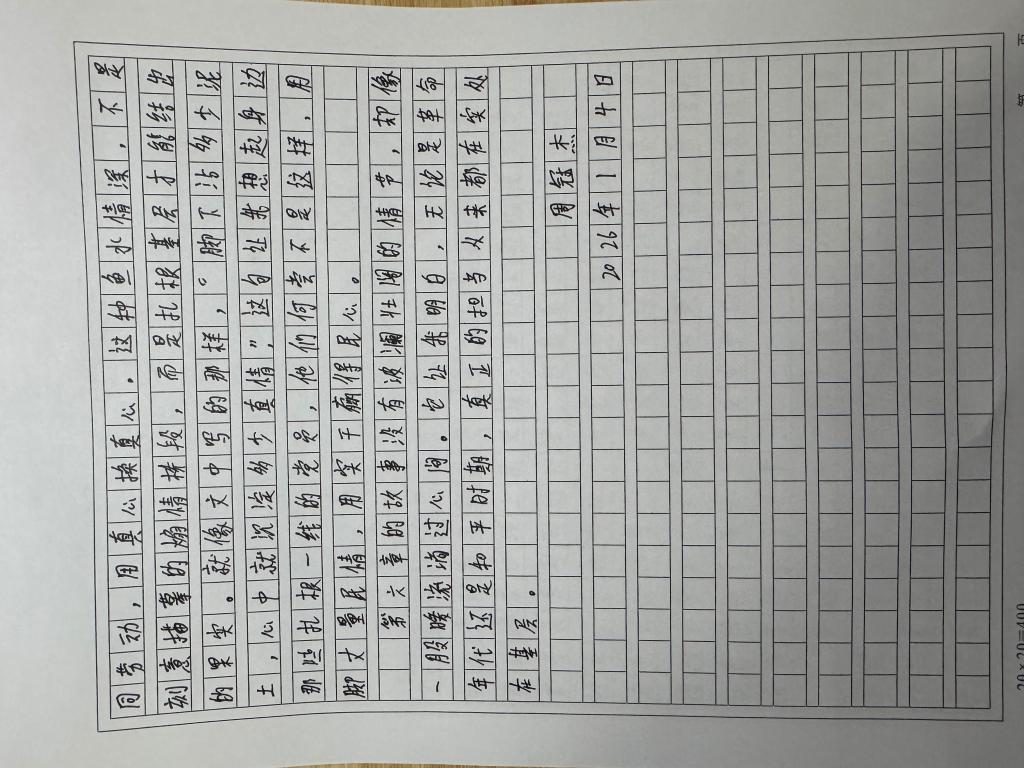 同劳动，用真心换真心。这种鱼水情深，不是
刻意描摹的煽情桥段，而是扎根基层才能结出
的果实。就像文中写的那样，“脚下沾多少泥
土，心中就沉淀多少真情”，这句让我想起身边
那些扎根一线的党员，他们何尝不是这样，用
脚丈量民情，用实干赢得民心。
第六章的故事没有波澜壮阔的情节，却像
一股暖流淌过心间。它让我明白，无论是革命
年代还是和平时期，真正的担当从来都在实处
在基层。
周冠杰
2026年1月4日
20×20=400